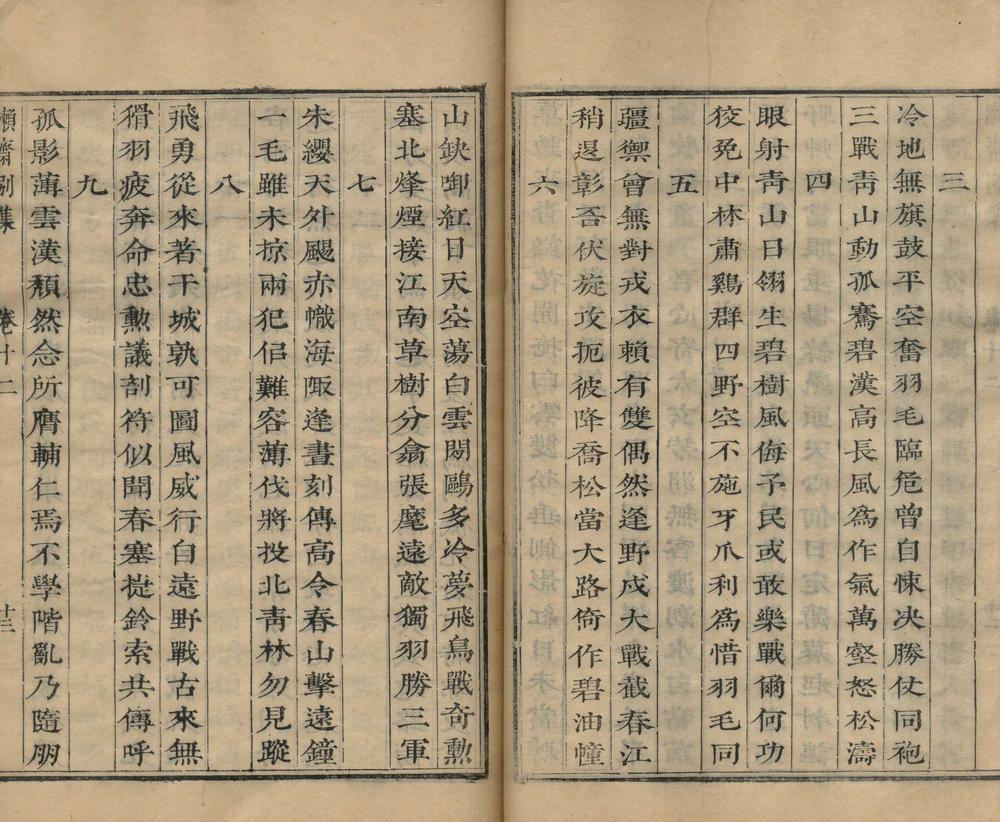 三
冷地無旗鼓平空奮羽毛臨危曾自悚决勝仗同袍
三戰靑山動孤騫碧漢高長風爲作氣萬壑怒松濤
四
眼射靑山日翎生碧樹風侮予民或敢樂戰爾何功
狡兔中林肅鷄群四野空不施牙爪利爲惜羽毛同
五
疆禦曾無對戎衣賴有雙偶然逢野戍大戰截春江
稍逞彰吾伏旋攻扼彼降喬松當大路倚作碧油幢
六
山鈌啣紅日天空蕩白雲閒鷗多冷夢飛鳥戰奇勲
塞北烽煙接江南草樹分翕張麾遠敵獨羽勝三軍
七
朱纓天外颺赤幟海陬逢晝刻傳高令春山擊遠鐘
一毛雖未掠兩犯佀難容薄伐將投北靑林勿見蹤
八
飛勇從來著干城孰可圖風威行自遠野戰古來無
猾羽疲奔命忠勲議剖符似聞春塞徒鈴索共傳呼
九
孤影薄雲漢頹然念所膺輔仁焉不學階亂乃隨朋
嬾齋别集
卷十二
十三